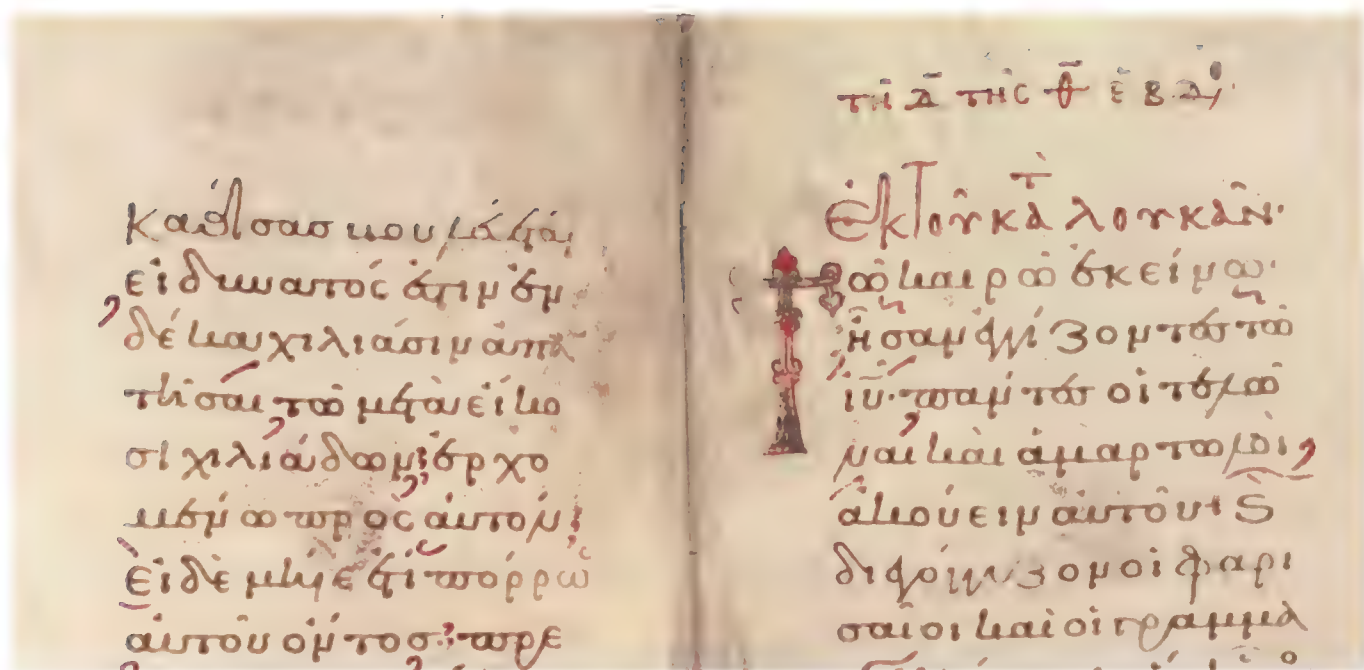 καθίσας βουλεύεται
εἰ δυνατός ἐστιν ἐν
δέκα χιλιάσιν ἀπαν
τῆσαι τῷ μετὰ εἴκο
σι χιλιάδων ἐρχο
μένω πρὸς αὐτόν·
Εἰ δὲ μήγε ἔτι πόρρω
αὐτοῦ ὄντος· πρε
τῆ Δ τῆς θ ἑβδ
Ἐκ τοῦ κατὰ λουκᾶν·
Τῶ καιρῶ ἐκείνω·
ἦσαν ἐγγίζοντες τῶ
ιυ· πάντες οἱ τελῶ
ναι καὶ ἁμαρτωλοὶ,
ἀκούειν αὐτοῦ· Ϛ
διεγόγγυζον οἱ φαρι
σαῖοι καὶ οἱ γραμμα